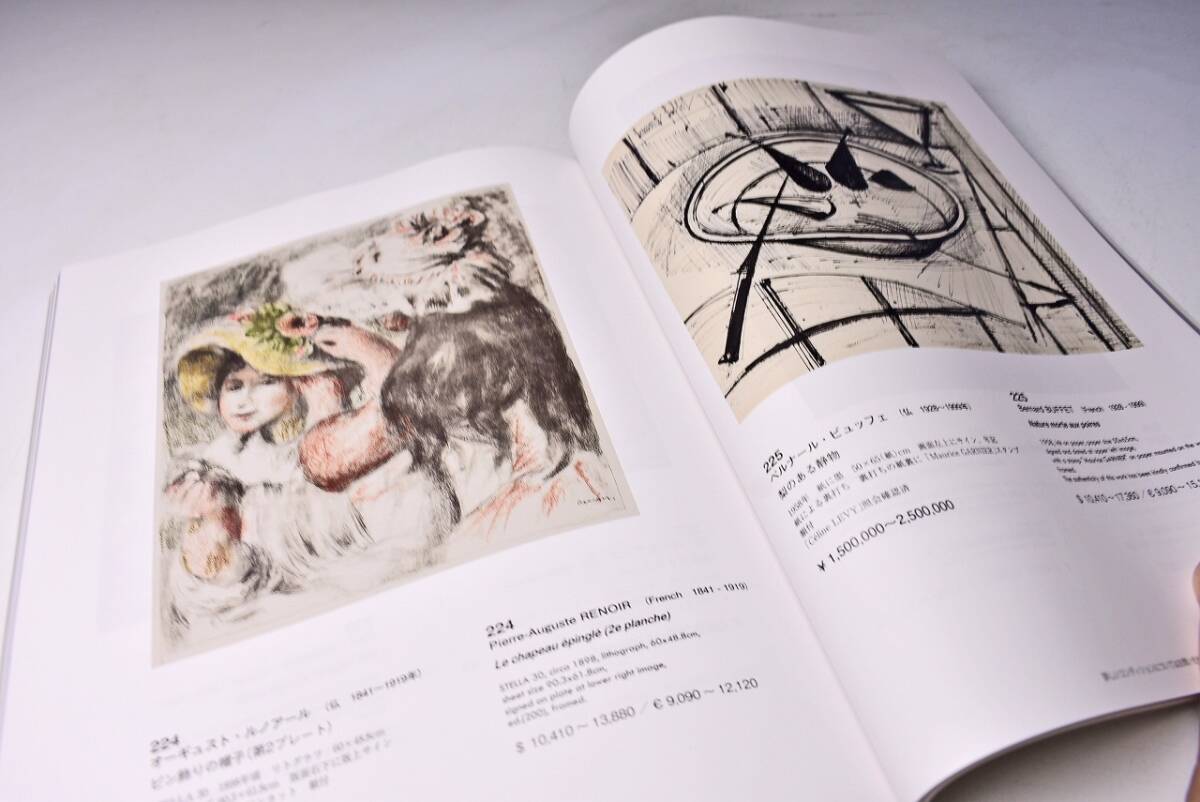 224
オーギュスト・ルノアール （仏 1841～1919年）
ピン飾りの帽子（第2プレート）
STELLA 30 1898年頃 リトグラフ 60×48.8cm
画面右下に版上サイン
224
Pierre-Auguste RENOIR (French 1841 - 1919)
Le chapeau épinglé (2e planche)
STELLA 30, circa 1898, lithograph, 60x48.8cm,
sheet size 90.3x61.8cm,
signed on plate at lower right image,
ed.(200), framed.
$ 10,410～13,880 / € 9,090～12,120
225
ベルナール・ビュッフェ （仏 1928～1999年）
梨のある静物
1958年 紙に墨 50×65(紙)cm 画面左上にサイン、年記
紙による裏打ち 裏打ちの紙裏に「Maurice GARNIER」スタンプ
額付
「Céline LEVY」照会確認済
¥ 1,500,000～2,500,000
*225
Bernard BUFFET (French 1928 - 1999)
Nature morte aux poires
1958, ink on paper, paper size 50x65cm,
signed and dated at upper left image,
with a stamp "Maurice GARNIER" on paper mounted on the
framed.
The authenticity of this work has been kindly confirmed
$ 10,410～17,360 / € 9,090～15,